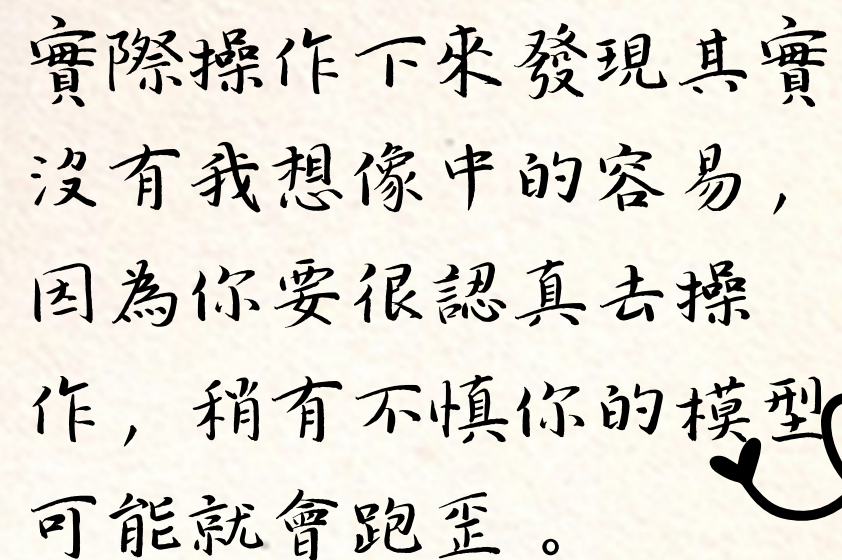 實際操作下來發現其實
沒有我想像中的容易，
因為你要很認真去操
作，稍有不慎你的模型
可能就會跑歪。